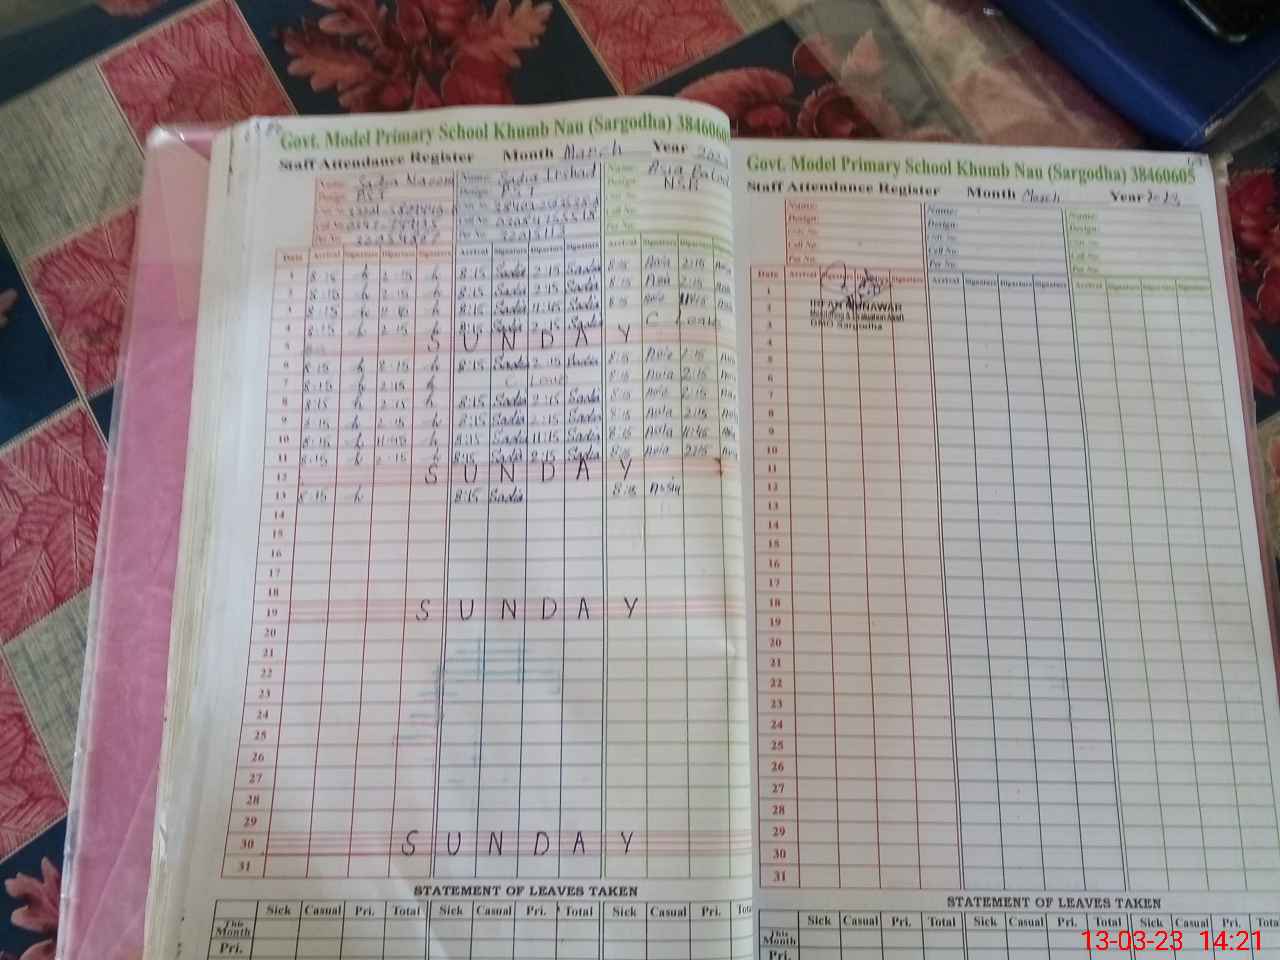 Govt. Model Primary School Khumb Nau (Sargodha) 3846060
Staff Attendance Register Month March Year
Name: Name: Sadia Irshad Name: Asia
Design: PST Design: PST Design: NSB
Date Arrival Signature Departure Signature Arrival Signature Departure Signature Arrival Signature Departure
1 8:15 2:15 8:15 Sadia 2:15 Sadia 8:15 Asia 2:15 Asia
2 8:15 2:15 8:15 Sadia 2:15 Sadia 8:15 Asia 2:15
3 8:15 11:45 8:15 Sadia 11:45 Sadia 8:15 Asia 11:45
4 8:15 2:15 8:15 Sadia 2:15 Sadia C Leave
5 SUNDAY
6 8:15 2:15 8:15 Sadia 2:15 Sadia 8:15 Asia 2:15
7 8:15 2:15 C Leave 8:15 Asia 2:15
8 8:15 2:15 8:15 Sadia 2:15 Sadia 8:15 Asia 2:15
9 8:15 2:15 8:15 Sadia 2:15 Sadia 8:15 Asia 2:15
10 8:15 11:45 8:15 Sadia 11:45 Sadia 8:15 Asia 11:45
11 8:15 2:15 8:15 Sadia 2:15 Sadia 8:15 Asia 2:15
12 SUNDAY
13 8:15 8:15 Sadia 8:15 Assia
14
15
16
17
18
19 SUNDAY
20
21
22
23
24
25
26
27
28
29
30 SUNDAY
31
STATEMENT OF LEAVES TAKEN
Sick Casual Pri. Total Sick Casual Pri. Total Sick Casual Pri.
This Month
Pri.
Govt. Model Primary School Khumb Nau (Sargodha) 38460605
Staff Attendance Register Month March Year 2023
Name: Name: Name:
Design: Design: Design:
Cell No. Cell No. Cell No.
Per No. Per No. Per No.
Date Arrival Signature Departure Signature Arrival Signature Departure Signature Arrival Signature Departure Signature
IRFAN MUNAWAR
Monitoring & Evaluation Assistt
DMO Sargodha
1
2
3
4
5
6
7
8
9
10
11
12
13
14
15
16
17
18
19
20
21
22
23
24
25
26
27
28
29
30
31
STATEMENT OF LEAVES TAKEN
Sick Casual Pri. Total Sick Casual Pri. Total Sick Casual Pri.
This Month
Pri.
13-03-23 14:21